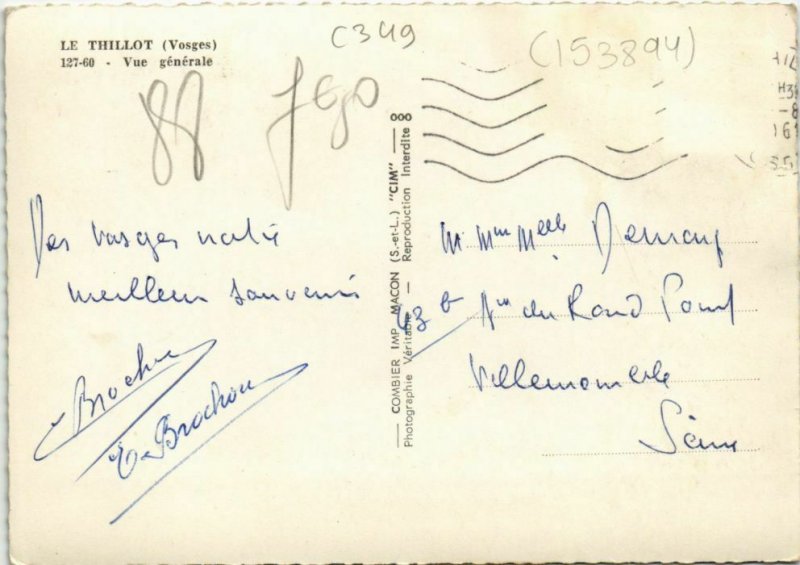 LE THILLOT (Vosges)
127-60 - Vue générale
C349
(153894)
88
Des Vosges notre
meilleur souvenir
Brochon
Brochon
COMBIER IMP. MACON (S.-et-L.) "CIM"
Photographie Véritable — Reproduction Interdite
000
M Mme Melle
du Rond Point
Villemomble
Seine